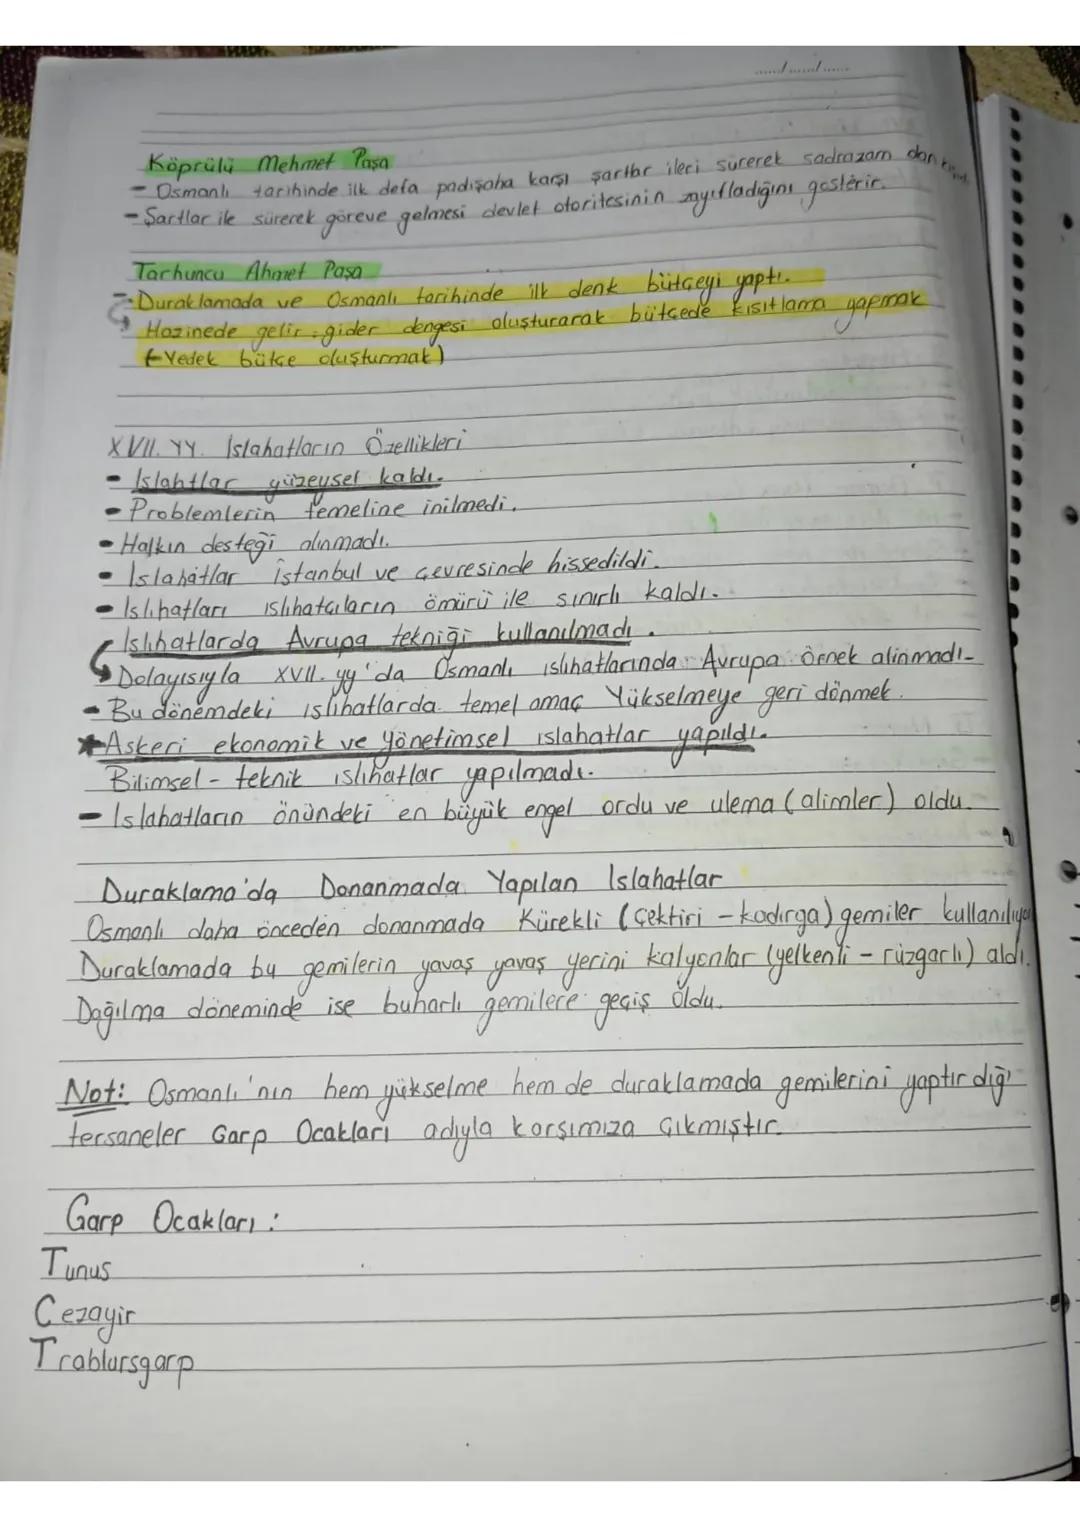 ....../....../......
Köprülü Mehmet Paşa
- Osmanlı tarihinde ilk defa padişaha karşı şartlar ileri sürerek sadrazam
- Şartlar ile sürerek göreve gelmesi devlet otoritesinin zayıfladığını gösterir.
Tarhuncu Ahmet Paşa
- Duraklamada ve Osmanlı tarihinde ilk denk bütçeyi yaptı.
Hazinede gelir - gider dengesi oluşturarak bütçede kısıtlama yapmak
(Yedek bütçe oluşturmak)
XVII. YY. Islahatların Özellikleri
- Islahtlar yüzeysel kaldı.
- Problemlerin temeline inilmedi.
- Halkın desteği alınmadı.
- Islahatlar İstanbul ve çevresinde hissedildi.
- Islıhatları ıslıhatcıların ömürü ile sınırlı kaldı.
Islıhatlarda Avrupa tekniği kullanılmadı.
Dolayısıyla XVII. yy'da Osmanlı ıslıhatlarında Avrupa örnek alinmadı-
- Bu dönemdeki ıslıhatlarda temel amaç Yükselmeye geri dönmek.
* Askeri ekonomik ve yönetimsel ıslahatlar yapıldı.
Bilimsel - teknik ıslıhatlar yapılmadı.
- Islahatların önündeki en büyük engel ordu ve ulema (alimler) oldu.
Duraklama'da Donanmada Yapılan Islahatlar
Osmanlı daha önceden donanmada Kürekli (çektiri - kadırga) gemiler kullanılıyor
Duraklamada bu gemilerin yavaş yavaş yerini kalyonlar (yelkenli - rüzgarlı) aldı.
Dağılma döneminde ise buharlı gemilere geçiş oldu.
Not: Osmanlı'nın hem yükselme hem de duraklamada gemilerini yaptırdığı
tersaneler Garp Ocakları adıyla karşımıza çıkmıştır.
Garp Ocakları :
Tunus
Cezayir
Trablursgarp